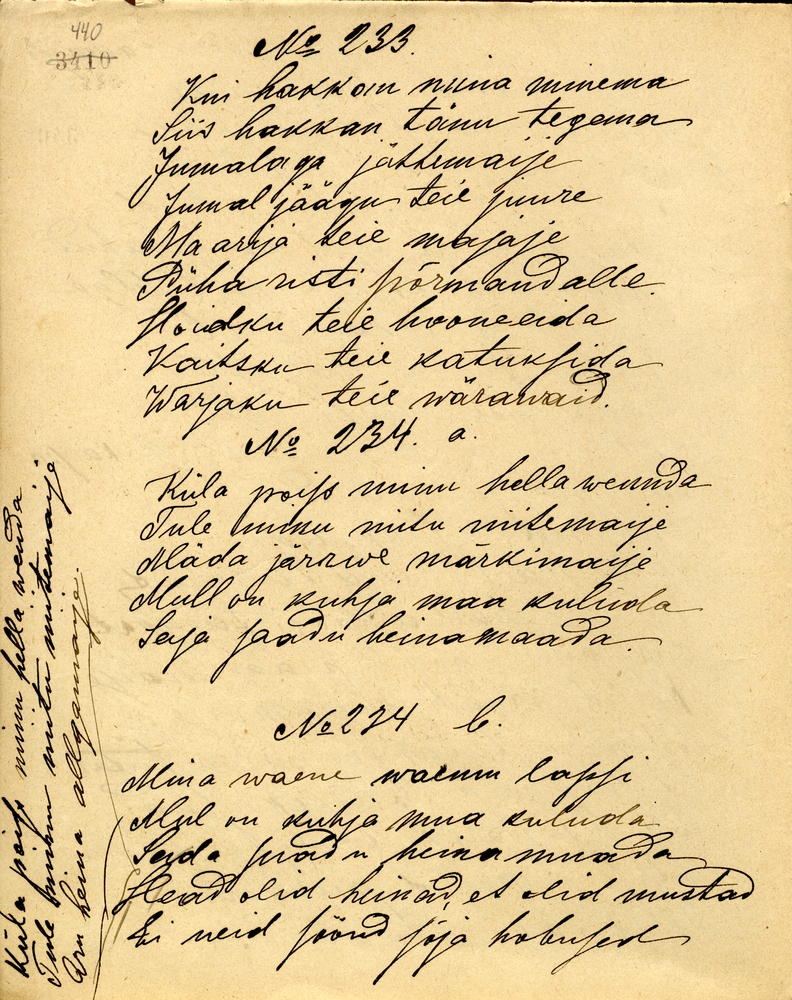 440
3410
No 233.
Kui hakkan mina minema
Siis hakkan tänu tegema
Jumalaga jättemaije
Jumal jäägu teie juure
Maarija teie majaje
Püha risti põrmandalle.
Hoidku teie hooneeida
Kaitsku teie katuksida
Warjaku teie wärawaid.
No 234. a.
Küla poiss minu hella wennda
Tule minu niitu niitemaije
Mäda järwe märkimaije
Mull on kuhja maa kuluda
Saja saadu heinamaada.
No 234 b.
Mina waene waenu lapsi
Mul on kuhja maa kuluda
Sada saadu heina maada
Head olid heinad, et olid mustad
Ei neid söönd sõja hobused
Küla poiss minu hella wenda
Tule minu niitu niitemaije
Aru heina allgamaije.